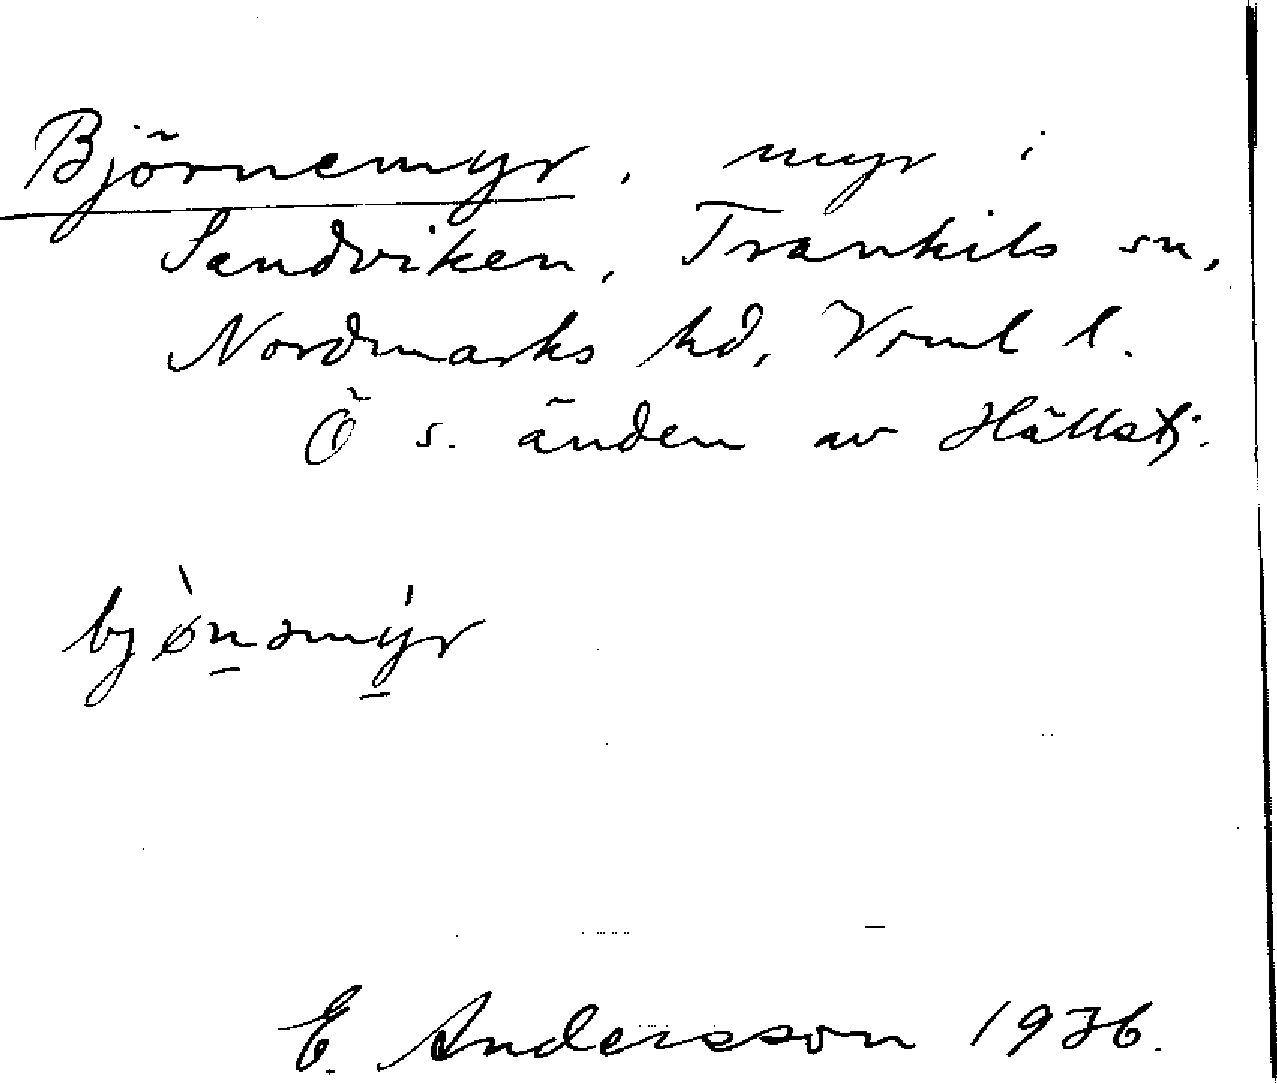 Björnemyr, myr i
Sandviken, Trankils sn,
Nordmarks hd, Vrml l.
Ö s. änden av Hällstj.
bjø̀nəmýr
E. Andersson 1936.